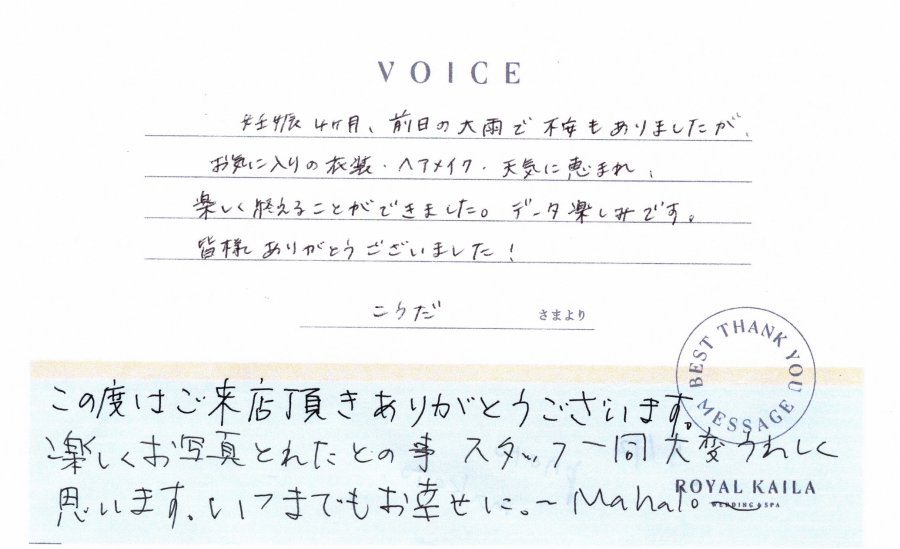 VOICE
妊娠4ヶ月、前日の大雨で不安もありましたが、
お気に入りの衣装・ヘアメイク・天気に恵まれ、
楽しく終えることができました。データ楽しみです。
皆様ありがとうございました！
こうだ さまより
BEST THANK YOU MESSAGE
この度はご来店頂きありがとうございます。
楽しくお写真とれたとの事 スタッフ一同大変うれしく
思います。いつまでもお幸せに。~Mahalo
ROYAL KAILA
WEDDING & SPA